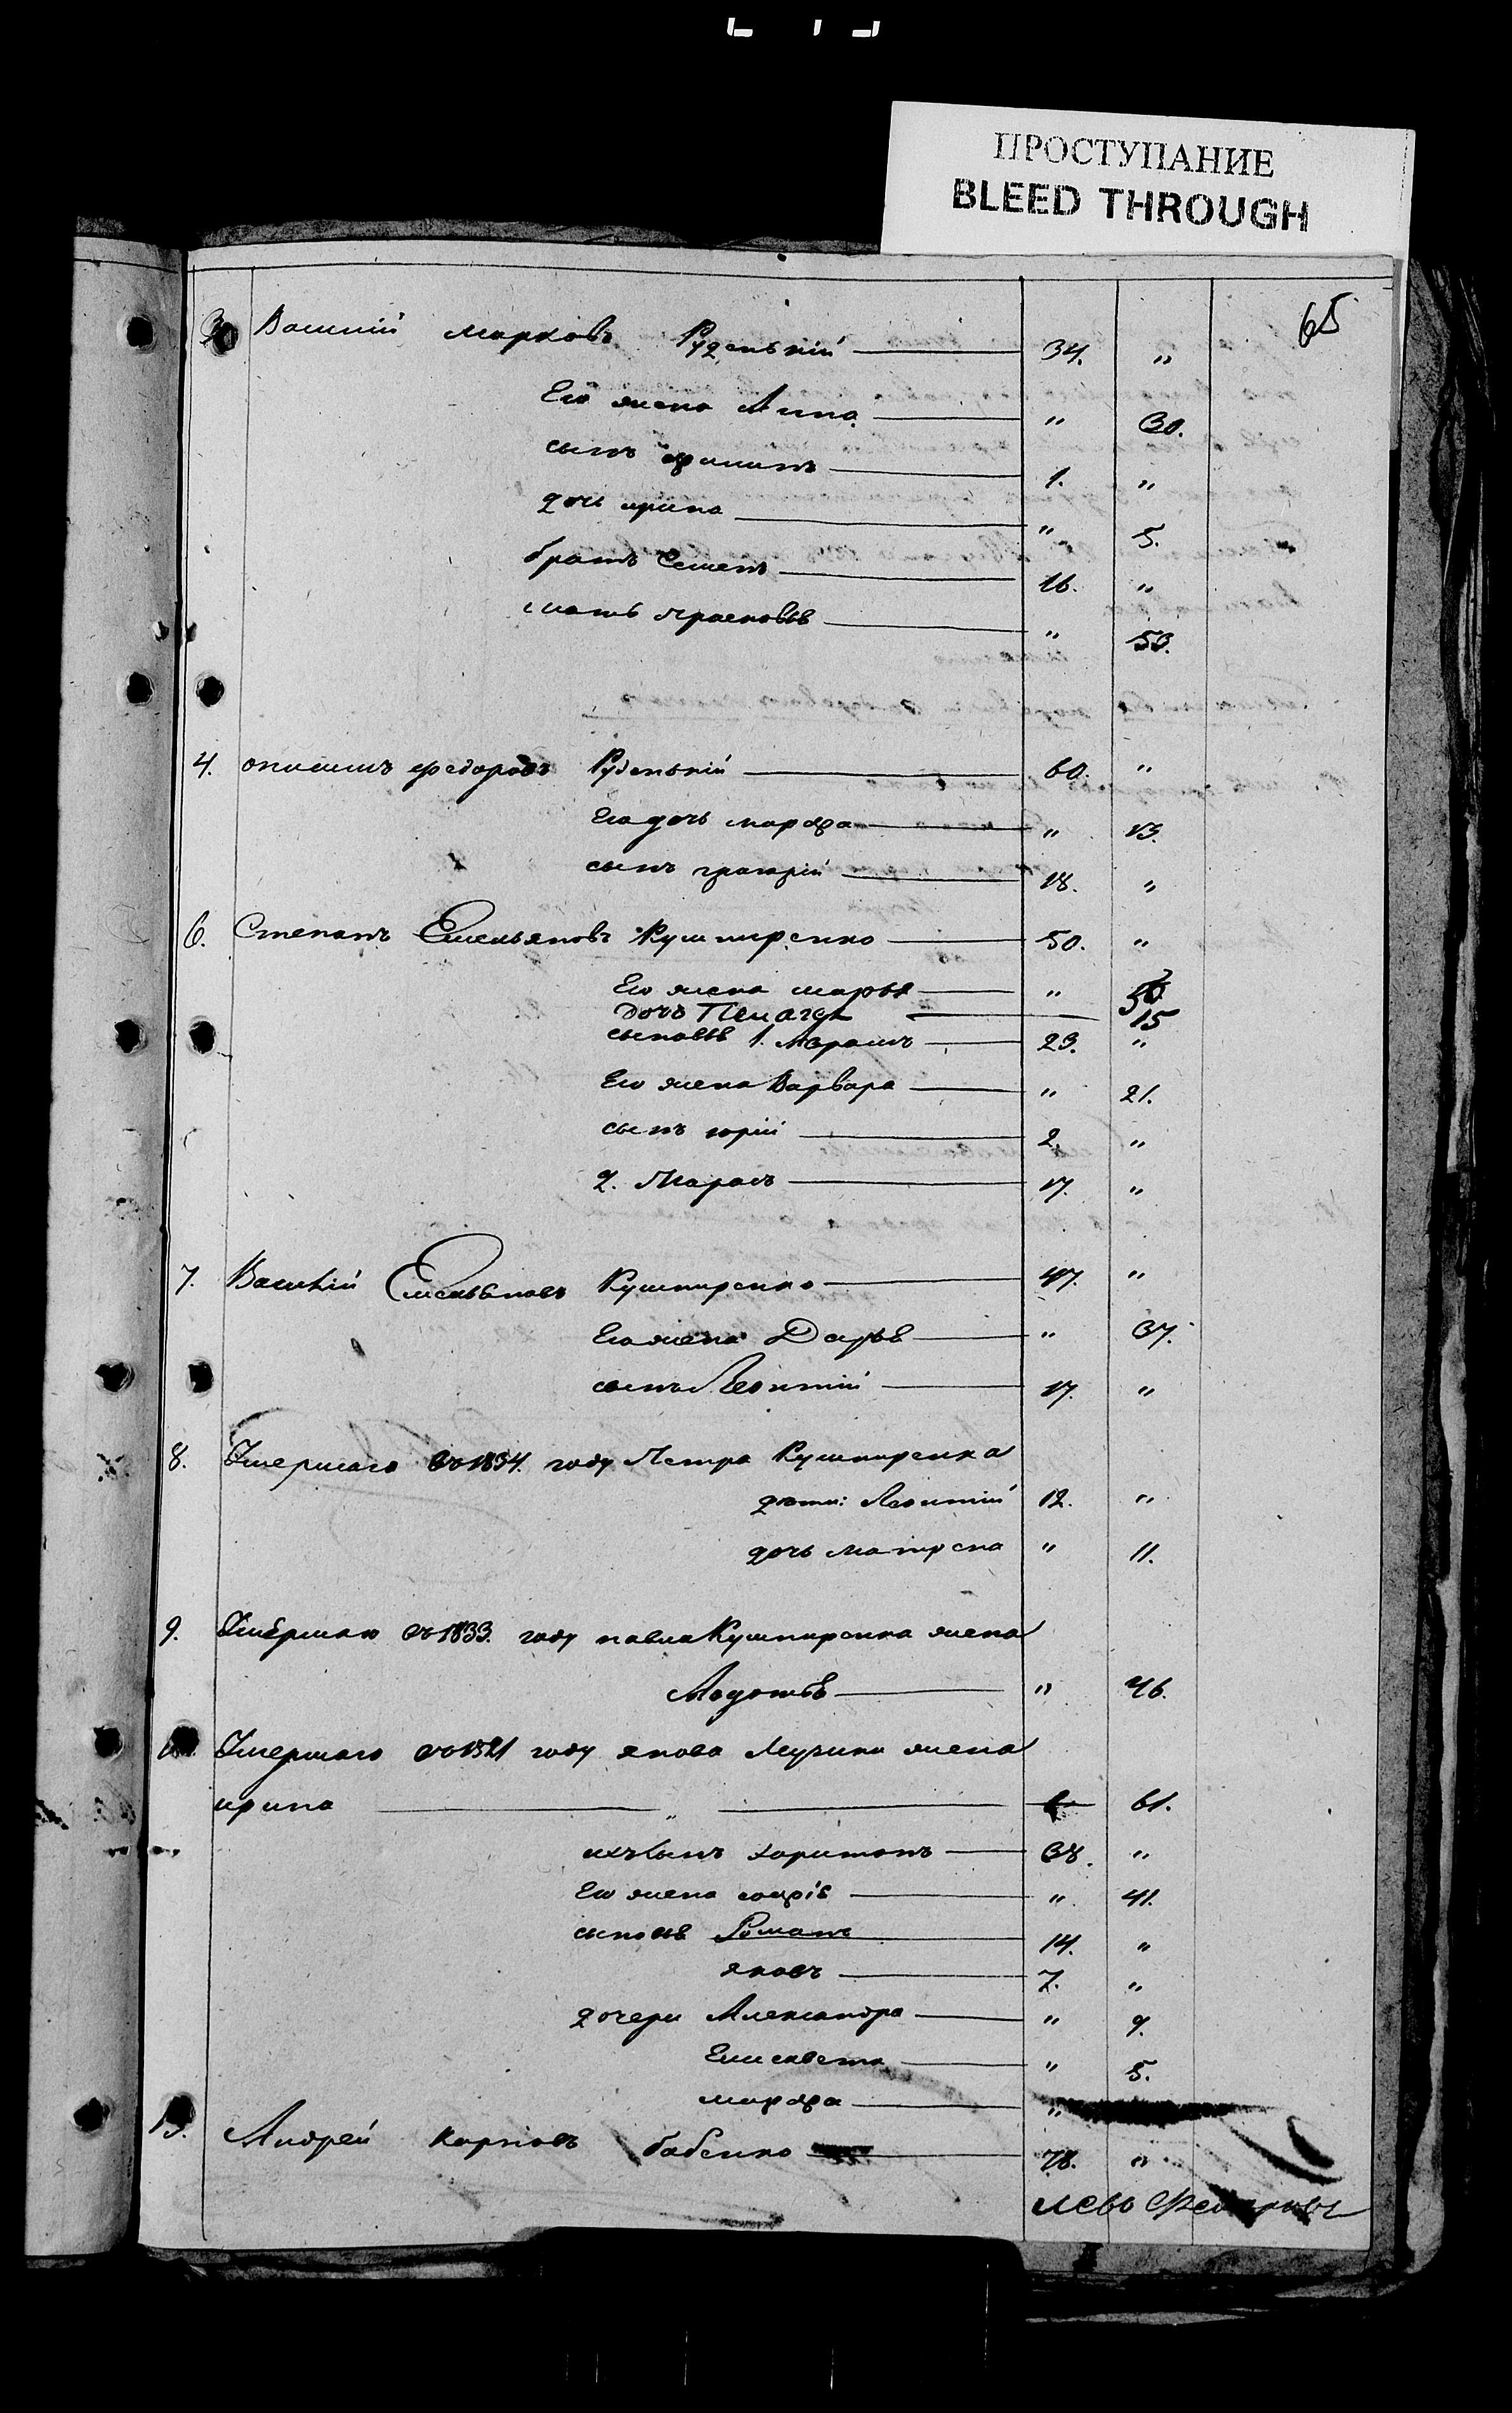 ПРОСТУПАНИЕ
BLEED THROUGH
65
3 Василий марковъ Руденькій 34. "
Его жена Анна " 30.
сынъ филипъ 1. "
дочь ирина " 5.
братъ Семенъ 16. "
мать прасковья " 50.
4. онисимъ федоровъ Руденькій 60. "
Его дочь марфа " 13.
сынъ григорій 18. "
6. Степанъ Емельяновъ Кушниренко 50. "
Его жена марья "
дочь Пелагея 15
сыновья 1. Абрамъ 23. "
Его жена Варвара " 21.
сынъ юрій 2. "
2. Тарасъ 17. "
7. Василій Емельяновъ Кушниренко 47. "
Его жена Дарья " 37.
сынъ Леонтій 17. "
8. Умершаго въ 1834. году Петра Кушниренка
дети: Леонтій 12. "
дочь матрена " 11.
9. Умершаго въ 1833. году павла Кушниренка жена
Агафья " 46.
Умершаго въ 1821 году якова жена
ирина " 61.
ихъ сынъ харитонъ 38. "
Его жена софія " 41.
сыновья Романъ 14. "
яковъ 7. "
дочери Александра " 9.
Елисавета " 5.
марфа "
Андрей карповъ бабенко 78. "